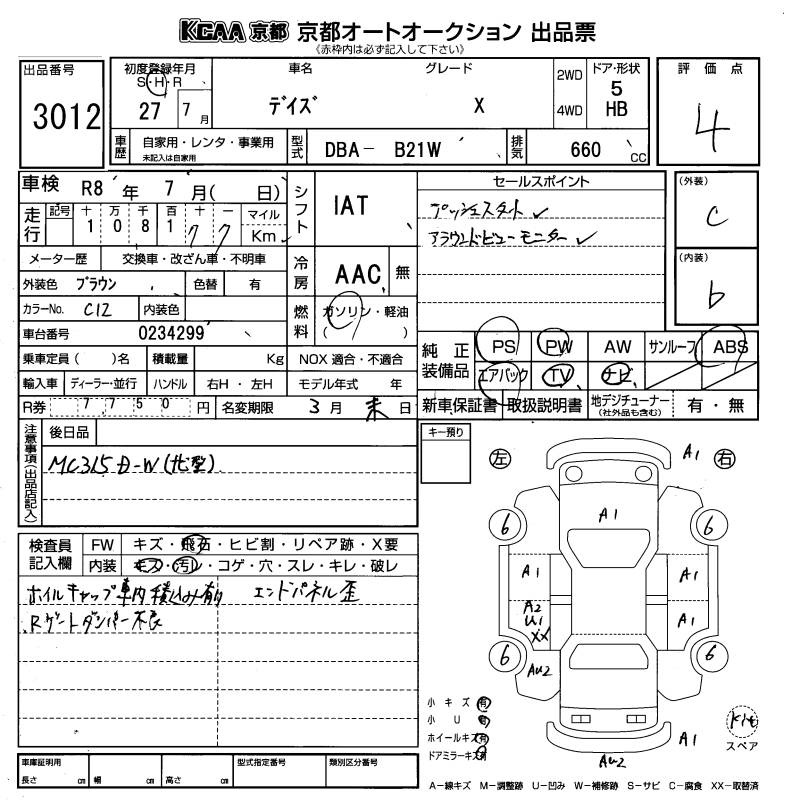 KCAA 京都 京都オートオークション 出品票
《赤枠内は必ず記入して下さい》
出品番号
3012
初度登録年月
S・H・R
27 7 月
車名
デイズ
グレード
X
2WD
4WD
ドア・形状
5
HB
評価点
4
車歴
自家用・レンタ・事業用
未記入は自家用
型式
DBA- B21W
排気
660 CC
車検 R8年 7月( 日)
走行
記号 十 万 千 百 十 一
1 0 8 1 7 7
マイル
Km
シフト
IAT
セールスポイント
プッシュスタート ✓
アラウンドビューモニター ✓
(外装)
C
(内装)
b
メーター歴 交換車・改ざん車・不明車
外装色 ブラウン 色替 有
カラーNo. C12 内装色
冷房
AAC 無
燃料
ガソリン・軽油
( )
車台番号 0234299
乗車定員( )名 積載量 Kg NOX 適合・不適合
輸入車 ディーラー・並行 ハンドル 右H・左H モデル年式 年
R券 7,750 円 名変期限 3月 末 日
純正装備品
PS PW AW サンルーフ ABS
エアバック TV ナビ
新車保証書 取扱説明書 地デジチューナー (社外品も含む) 有・無
注意事項(出品店記入)
後日品
MC315D-W(北型)
キー預り
検査員記入欄
FW キズ・飛石・ヒビ割・リペア跡・X要
内装 キズ・汚レ・コゲ・穴・スレ・キレ・破レ
ホイルキャップ車内積込み有 エンドパネル歪
Rゲートダンパー不良
左 右
A1
A1
6 6
A1 A1
A2
U1
XX
A1
6 6
AU2
A1
AU2
小キズ 有
小U 有
ホイールキズ 有
ドアミラーキズ 有
Kit
スペア
車庫証明用
長さ cm 幅 cm 高さ cm
型式指定番号
類別区分番号
A-線キズ M-調整跡 U-凹み W-補修跡 S-サビ C-腐食 XX-取替済